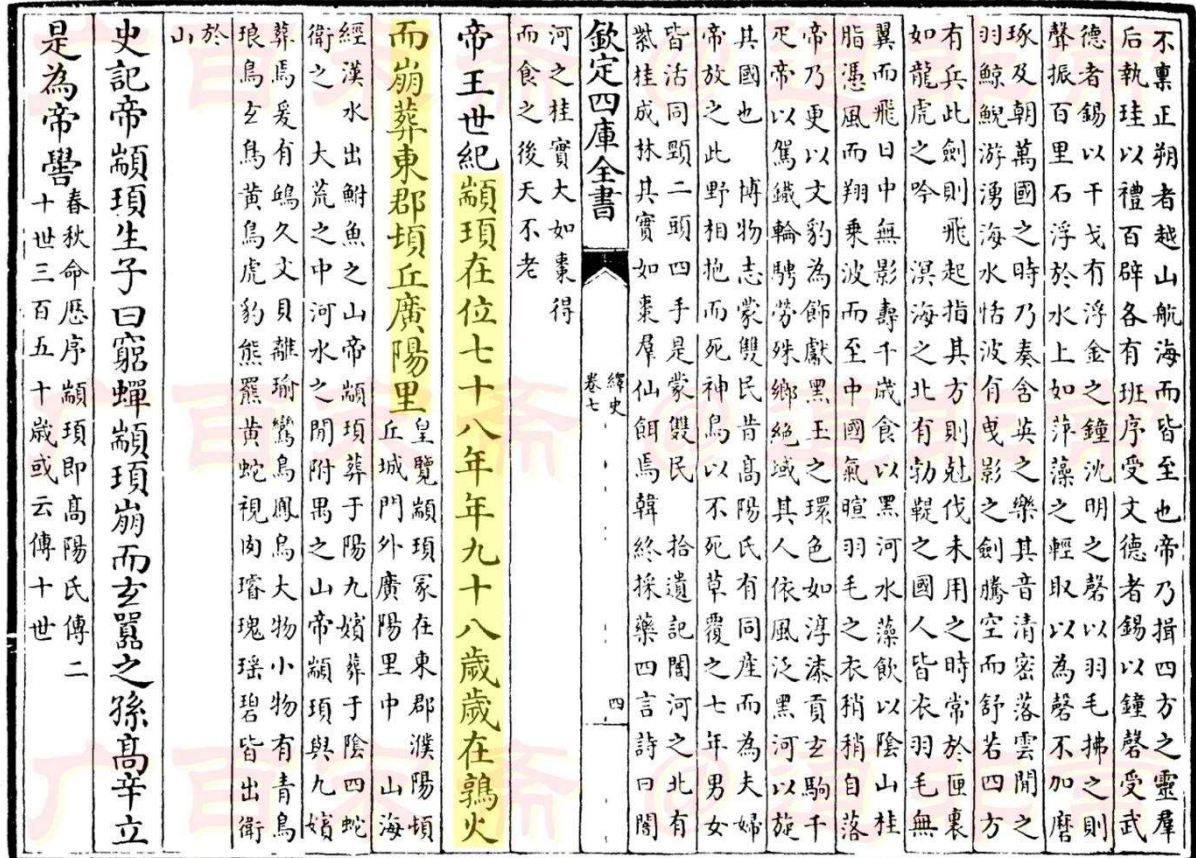 不禀正朔者越山航海而皆至也帝乃揖四方之靈羣
后執珪以禮百辟各有班序受文德者錫以鐘磬受武
德者錫以干戈有浮金之鐘沈明之磬以羽毛拂之則
聲振百里石浮於水上如萍藻之輕取以為磬不加磨
琢及朝萬國之時乃奏含英之樂其音清密落雲間之
羽鯨鯢游湧海水恬波有曳影之劍騰空而舒若四方
有兵此劍則飛起指其方則尅伐未用之時常於匣裏
如龍虎之吟　溟海之北有勃鞮之國人皆衣羽毛無
翼而飛日中無影壽千歲食以黑河水藻飲以陰山桂
脂憑風而翔乘波而至中國氣暄羽毛之衣稍稍自落
帝乃更以文豹為飾獻黑玉之環色如淳漆貢玄駒千
疋帝以駕鐵輪騁勞殊鄉絶域其人依風泛黑河以旋
其國也　博物志蒙雙民昔高陽氏有同産而為夫婦
帝放之此野相抱而死神鳥以不死草覆之七年男女
皆活同頸二頭四手是蒙雙民　拾遺記闇河之北有
紫桂成林其實如棗羣仙餌焉韓終採藥四言詩曰闇
欽定四庫全書
繹史
卷七
四
河之桂實大如棗得
而食之後天不老
帝王世紀顓頊在位七十八年年九十八歲歲在鶉火
而崩葬東郡頓丘廣陽里
皇覽顓頊冢在東郡濮陽頓
丘城門外廣陽里中　山海
經漢水出鮒魚之山帝顓頊葬于陽九嬪葬于陰四蛇
衛之　大荒之中河水之間附禺之山帝顓頊與九嬪
葬焉爰有鴟久文貝離瑜鸞鳥鳳鳥大物小物有青鳥
琅鳥玄鳥黃鳥虎豹熊羆黃蛇視肉璿瑰瑶碧皆出衛
於
山
史記帝顓頊生子曰窮蟬顓頊崩而玄囂之孫高辛立
是為帝嚳
春秋命歷序顓頊即高陽氏傳二
十世三百五十歲或云傳十世